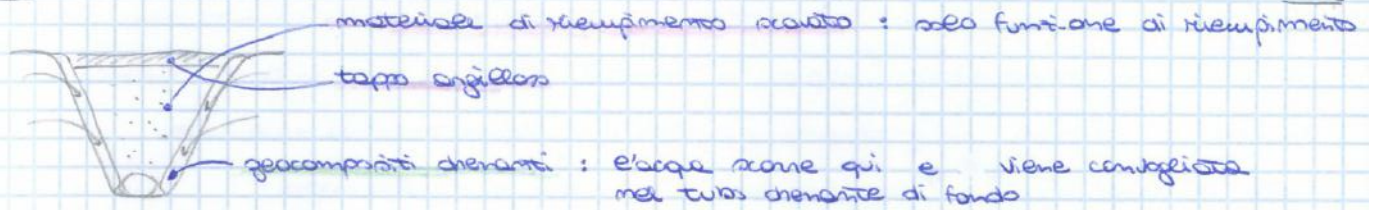 materiale di riempimento scavato : solo funzione di riempimento
tappo argilloso
geocompositi drenanti : l'acqua scorre qui e viene convogliata
nel tubo drenante di fondo